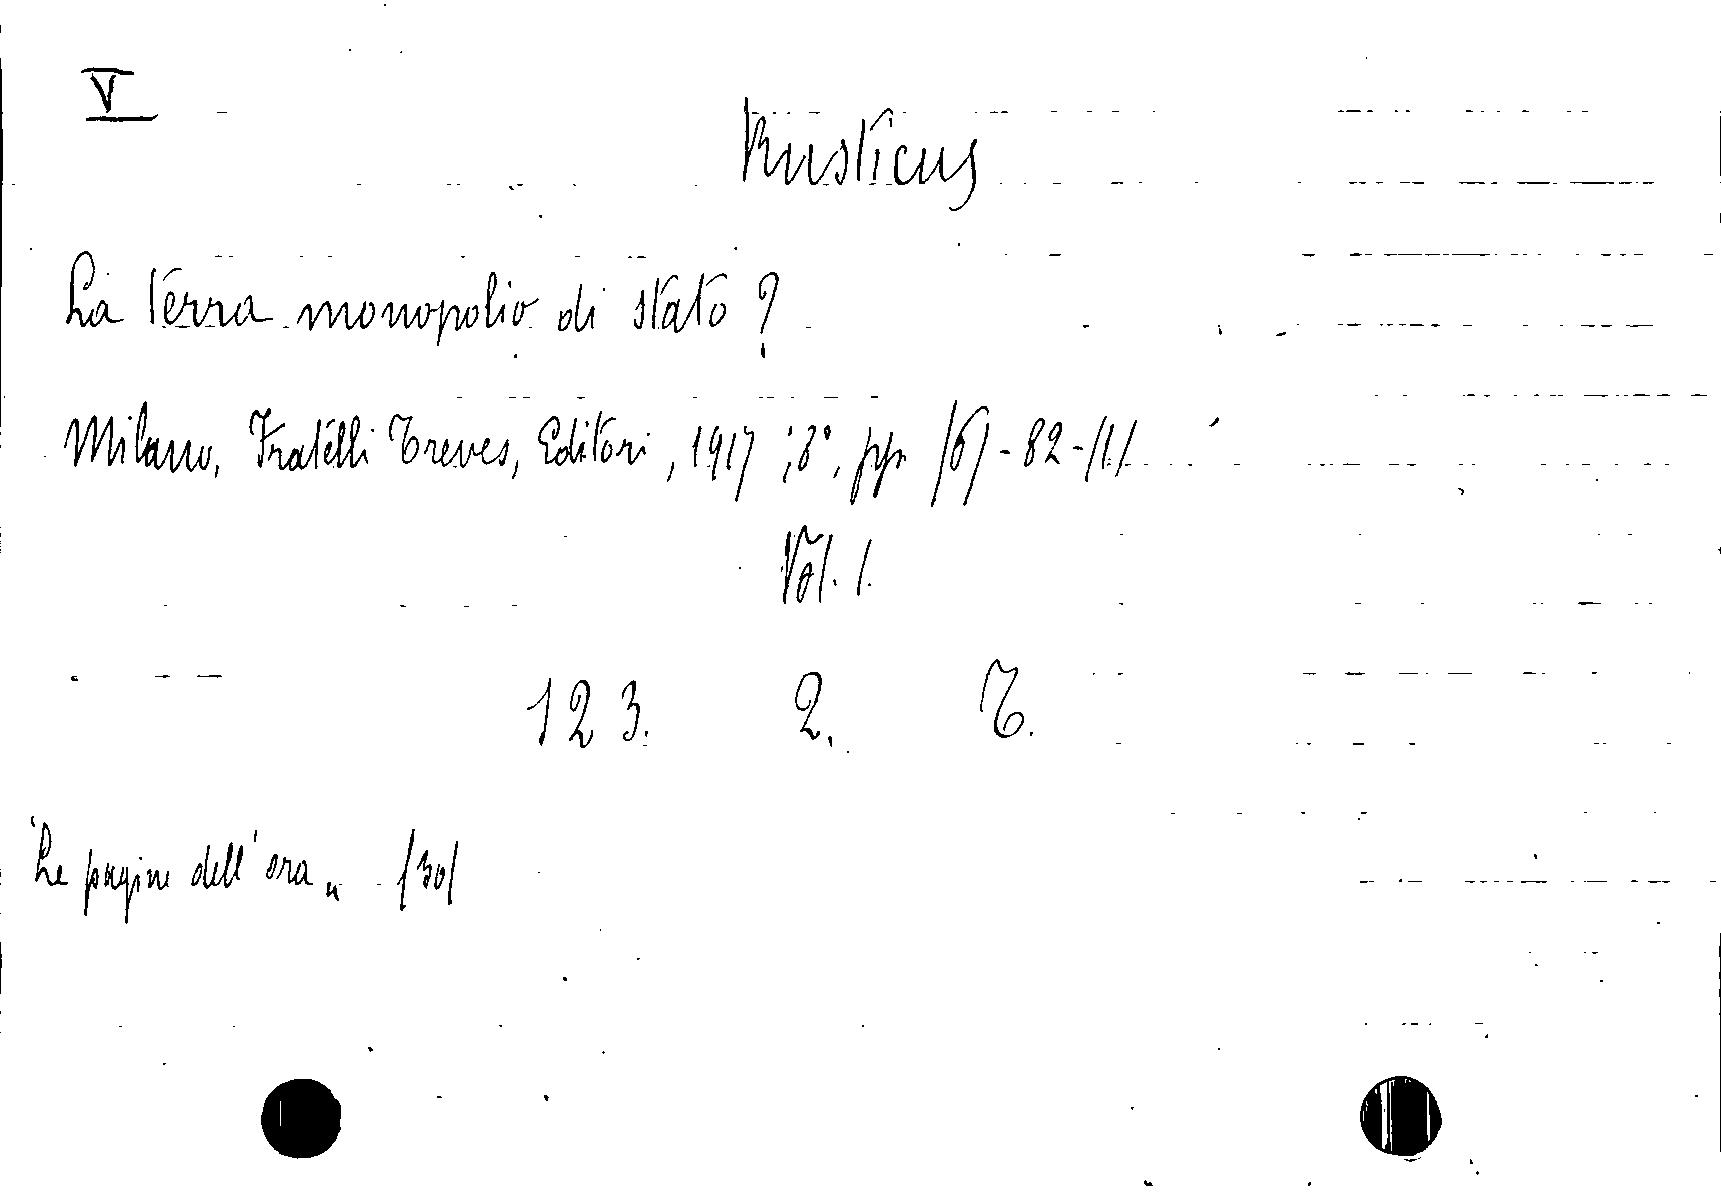 V
Rusticus
La terra monopolio di stato?
Milano, Fratelli Treves, Editori, 1917; 8°, pp. /6/-82-/1/
Vol. 1.
123. 2. T.
"Le pagine dell'ora„ /30/